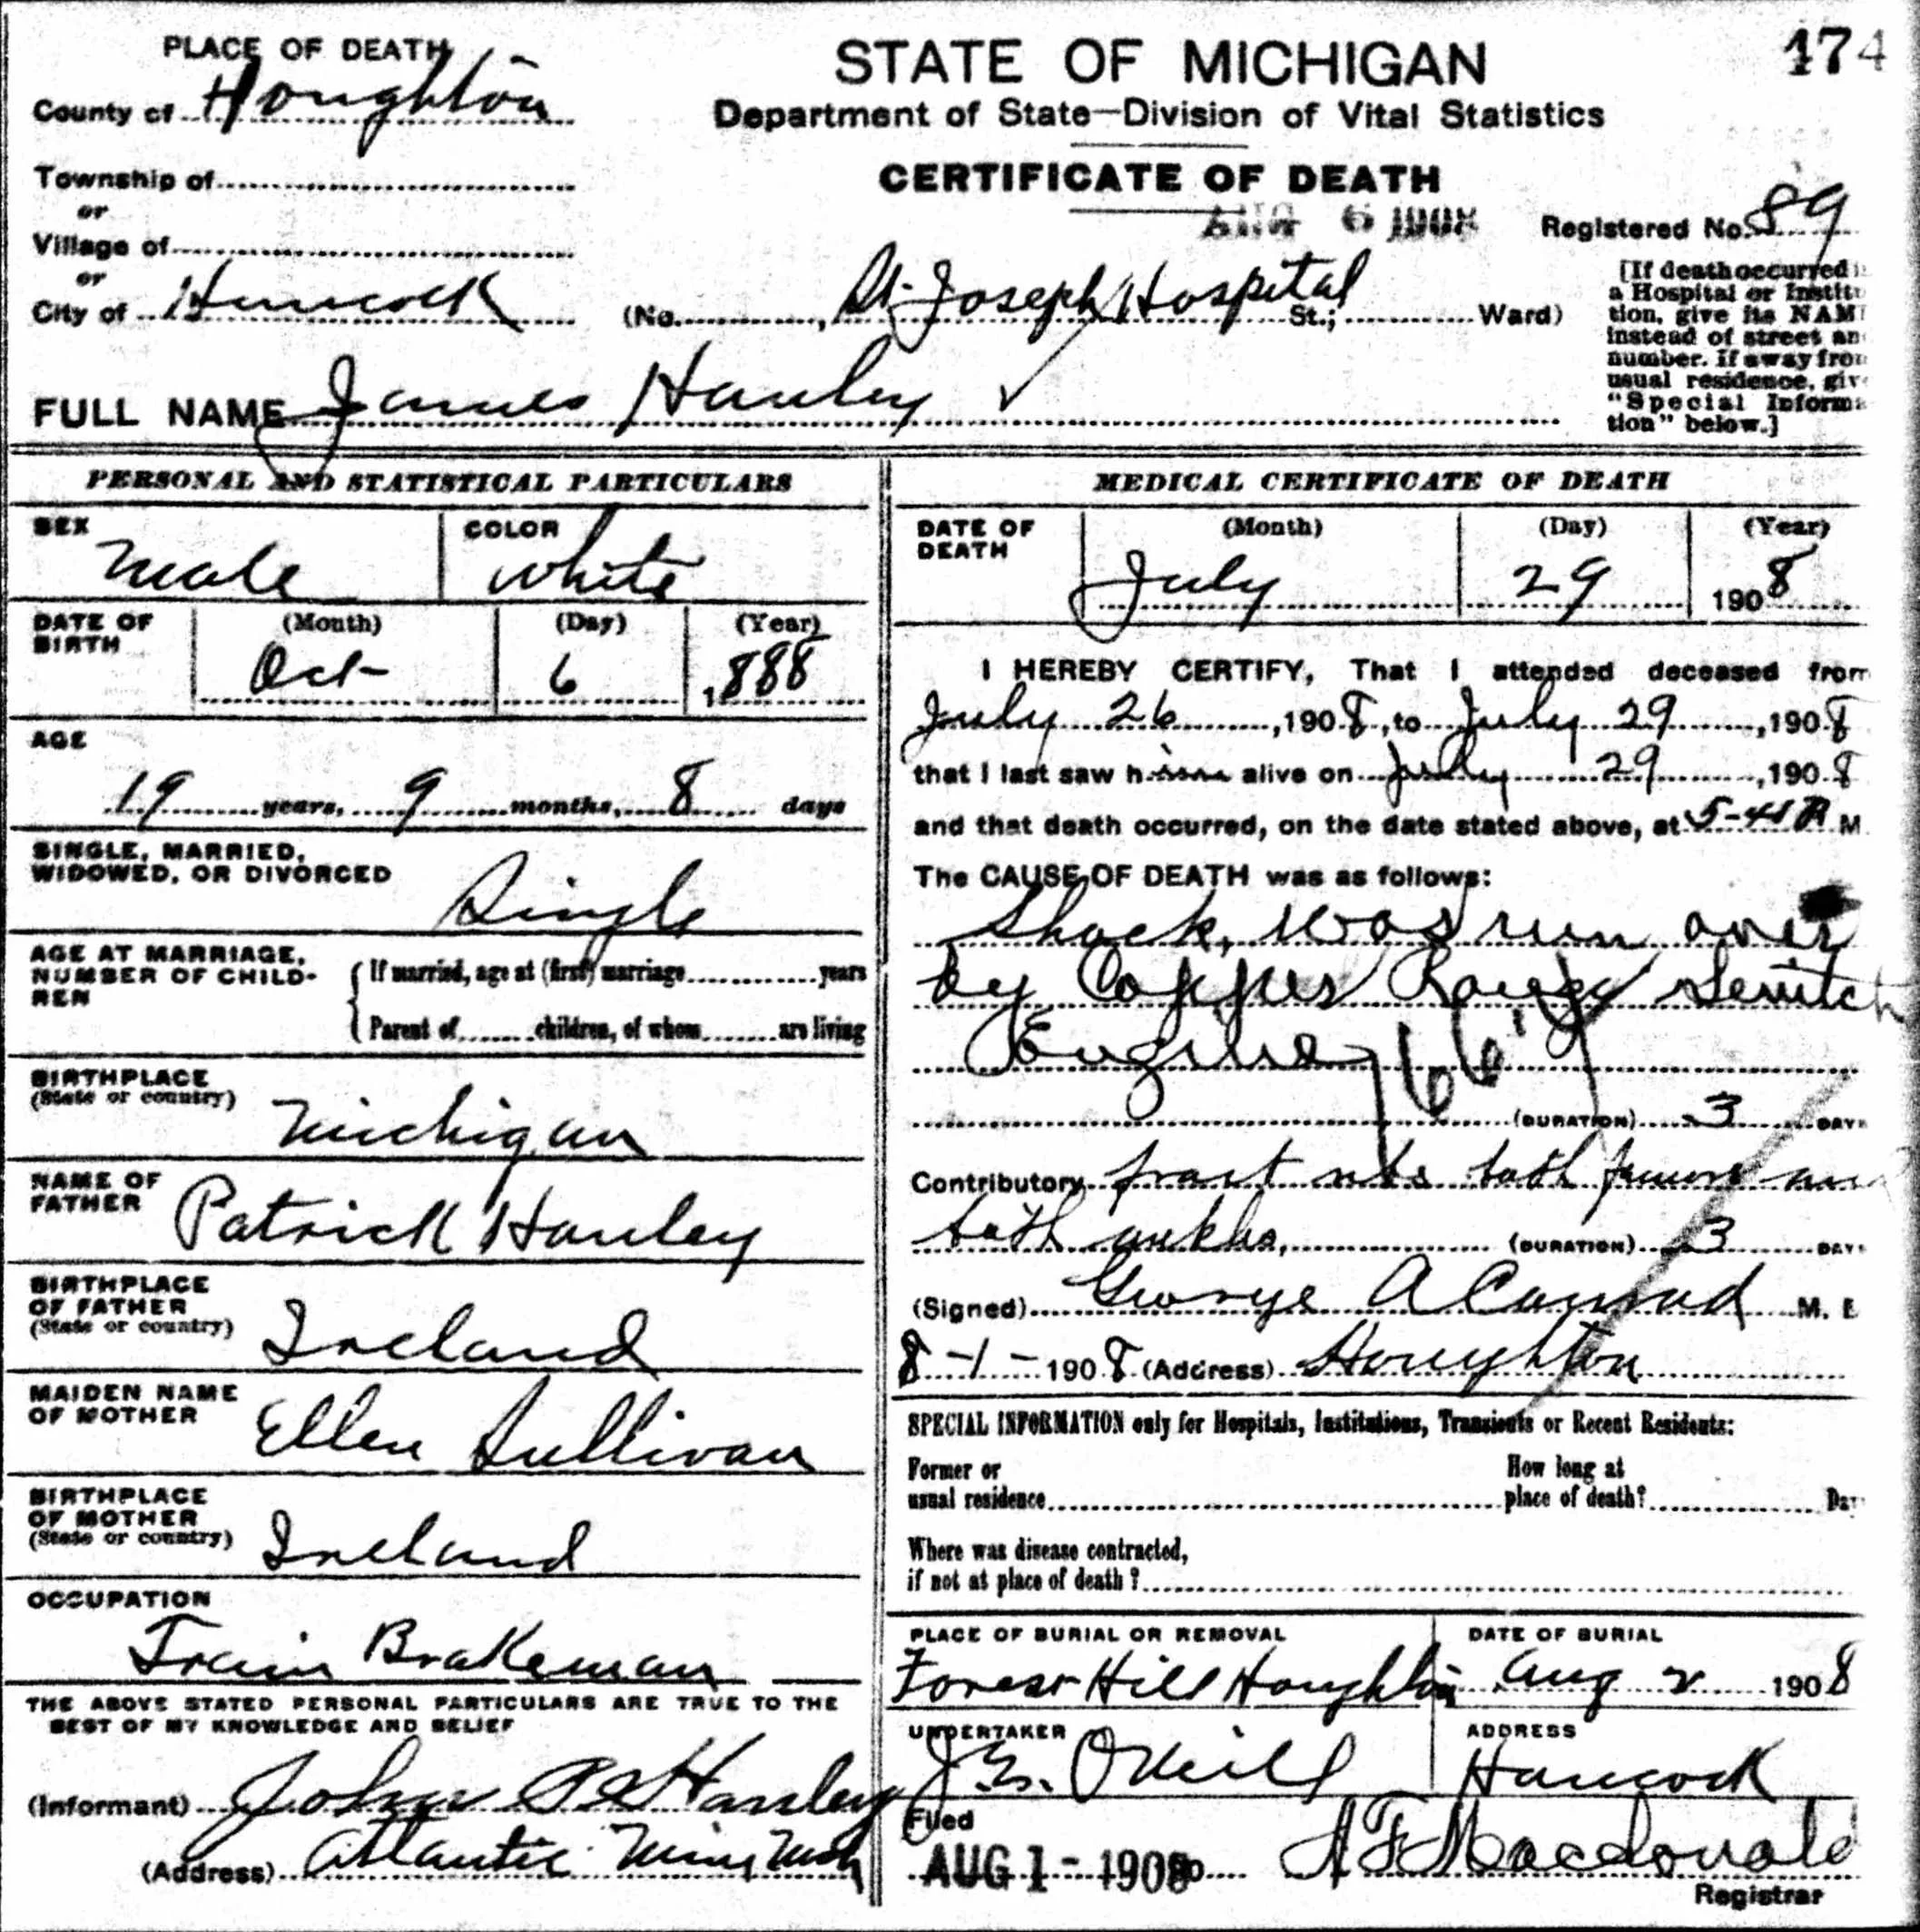 174
PLACE OF DEATH
County of Houghton
Township of
or
Village of
or
City of Hancock
STATE OF MICHIGAN
Department of State—Division of Vital Statistics
CERTIFICATE OF DEATH
AUG 6 1908
Registered No. 89
(No. , St. Joseph Hospital St.; Ward)
[If death occurred i
a Hospital or Institu
tion, give its NAM
instead of street an
number. If away from
usual residence, giv
"Special Informa
tion" below.]
FULL NAME James Hanley
PERSONAL AND STATISTICAL PARTICULARS
SEX Male
COLOR White
DATE OF BIRTH
(Month) (Day) (Year)
Oct 6 1888
AGE
19 years, 9 months, 8 days
SINGLE, MARRIED,
WIDOWED, OR DIVORCED
Single
AGE AT MARRIAGE,
NUMBER OF CHILD-
REN
If married, age at (first) marriage years
Parent of children, of whom are living
BIRTHPLACE
(State or country)
Michigan
NAME OF
FATHER
Patrick Hanley
BIRTHPLACE
OF FATHER
(State or country)
Ireland
MAIDEN NAME
OF MOTHER
Ellen Sullivan
BIRTHPLACE
OF MOTHER
(State or country)
Ireland
OCCUPATION
Train Brakeman
THE ABOVE STATED PERSONAL PARTICULARS ARE TRUE TO THE
BEST OF MY KNOWLEDGE AND BELIEF
(Informant) John Hanley
(Address) Atlantic Mine Mich
MEDICAL CERTIFICATE OF DEATH
DATE OF
DEATH
(Month) (Day) (Year)
July 29 1908
I HEREBY CERTIFY, That I attended deceased from
July 26, 1908, to July 29, 1908
that I last saw him alive on July 29, 1908
and that death occurred, on the date stated above, at M
The CAUSE OF DEATH was as follows:
Shock, was run over
by Copper Range Switch
Engine
166
(DURATION) 3 DAYS
Contributory fract ribs both femurs and
both ankles, (DURATION) 3 DAYS
(Signed) George A Conrad M. D
8-1-1908 (Address) Houghton
SPECIAL INFORMATION only for Hospitals, Institutions, Transients or Recent Residents:
Former or
usual residence
How long at
place of death? Day
Where was disease contracted,
if not at place of death?
PLACE OF BURIAL OR REMOVAL
Forest Hill Houghton
DATE OF BURIAL
Aug 2 1908
UNDERTAKER
O'Neill
ADDRESS
Hancock
Filed
AUG 1-1908
A F Macdonald
Registrar